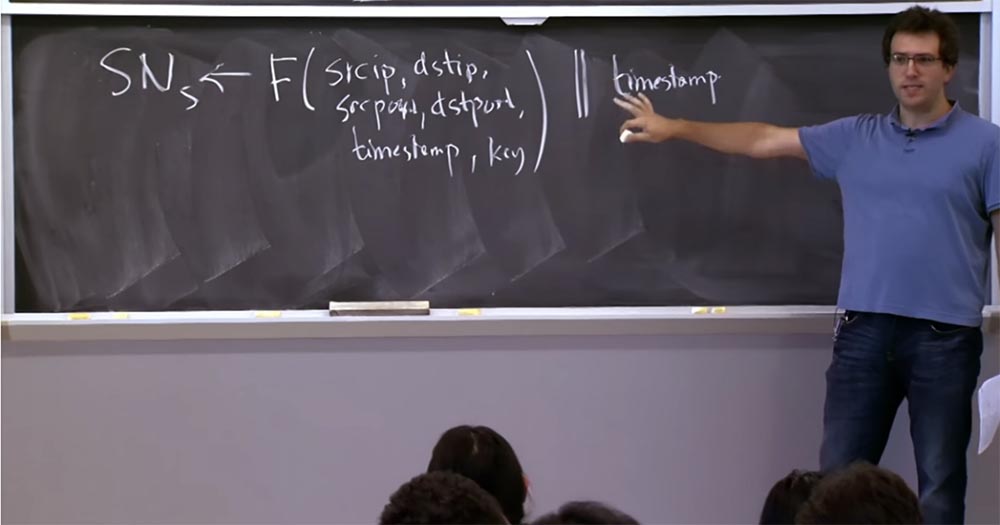 SNₛ ← F(srcip, dstip,
srcport, dstport,
timestamp, key) || timestamp